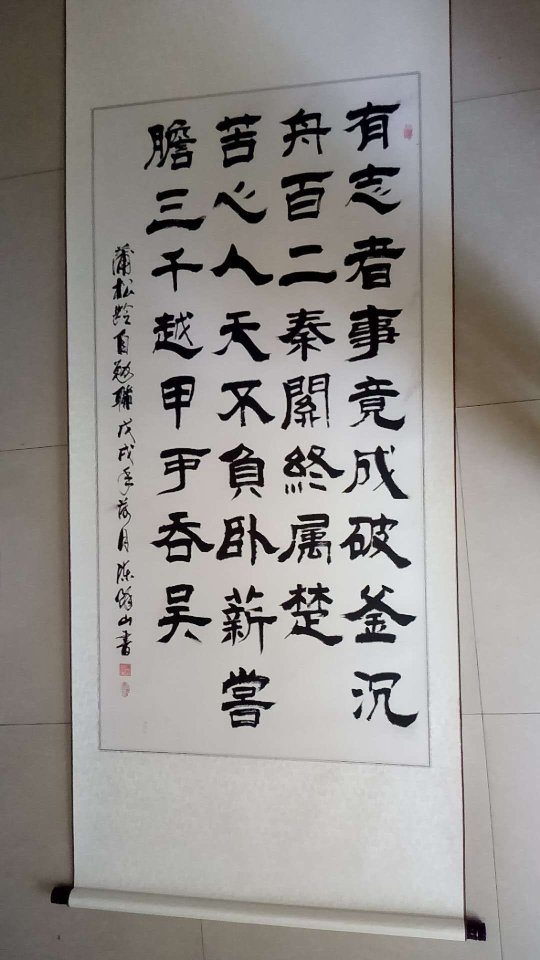 有志者事竟成破釜沉
舟百二秦關終属楚
苦心人天不負卧薪嘗
膽三千越甲可吞吴
蒲松龄自勉 戊戌年 月陈 山書